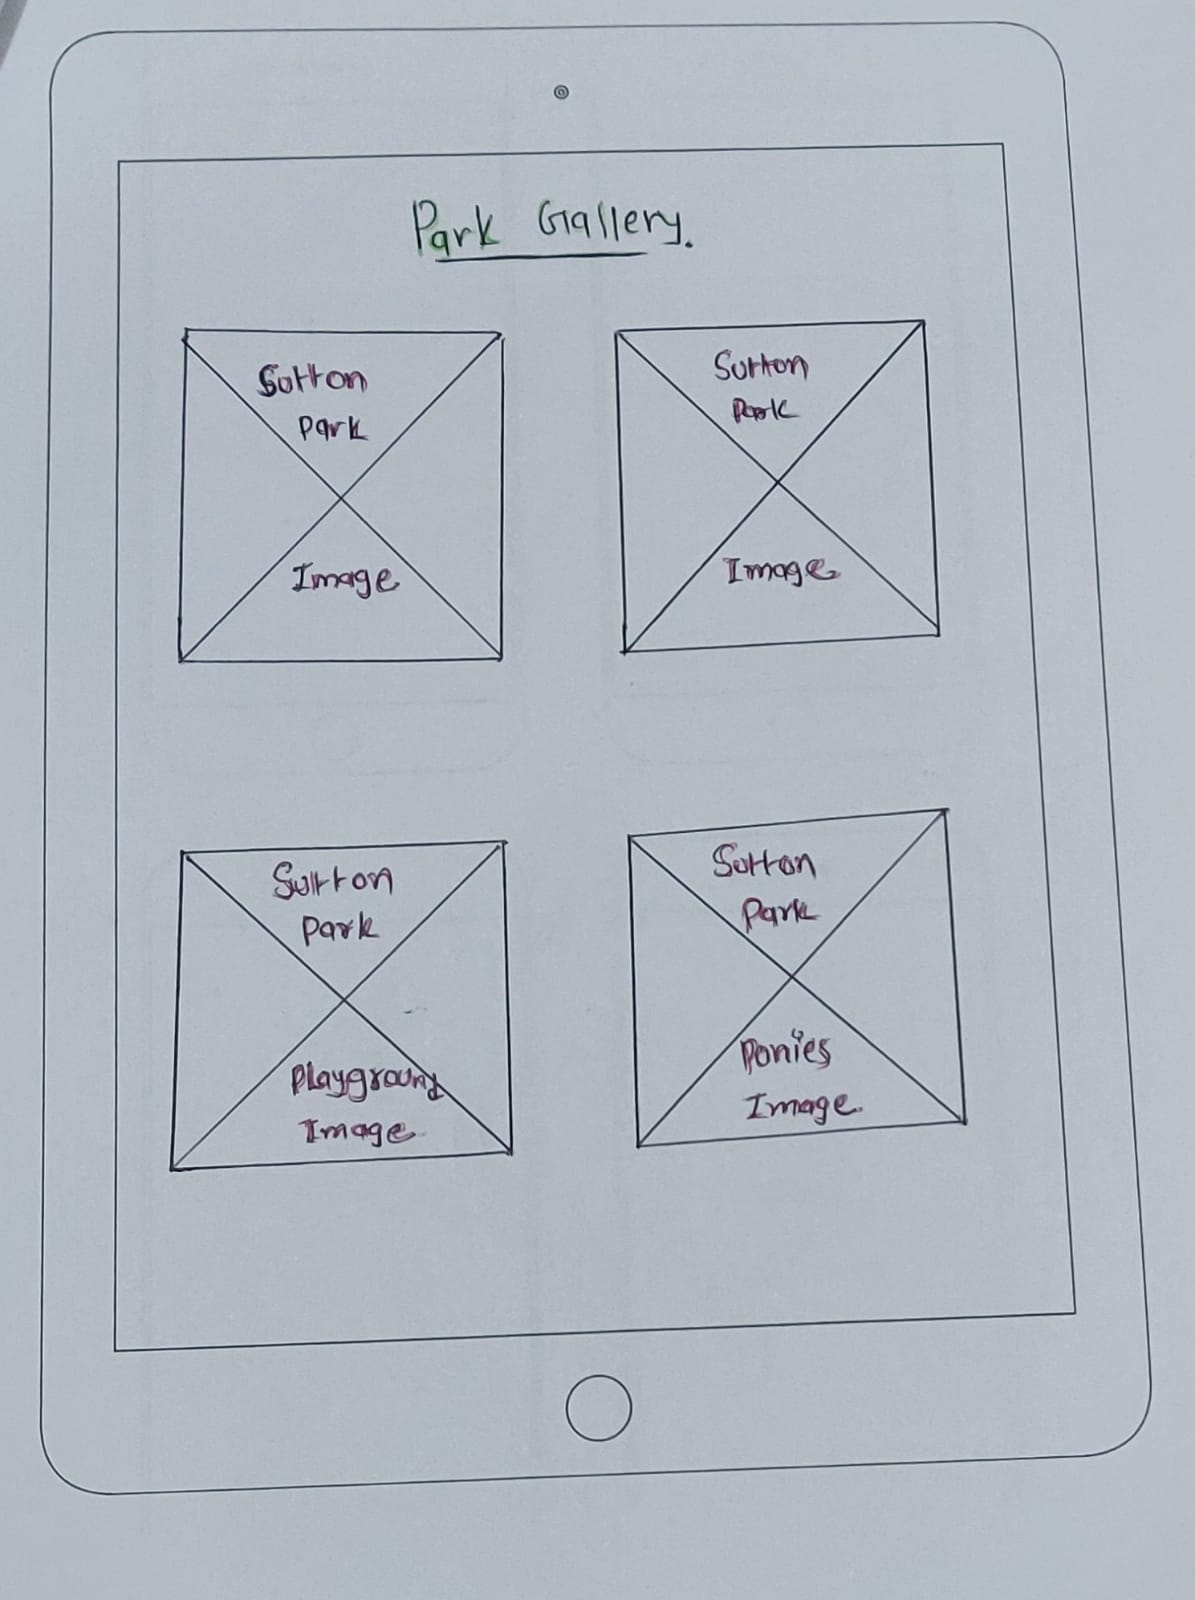 Park Gallery.
Sutton
Park
Image
Sutton
Park
Image
Sutton
Park
Playground
Image
Sutton
Park
Ponies
Image.